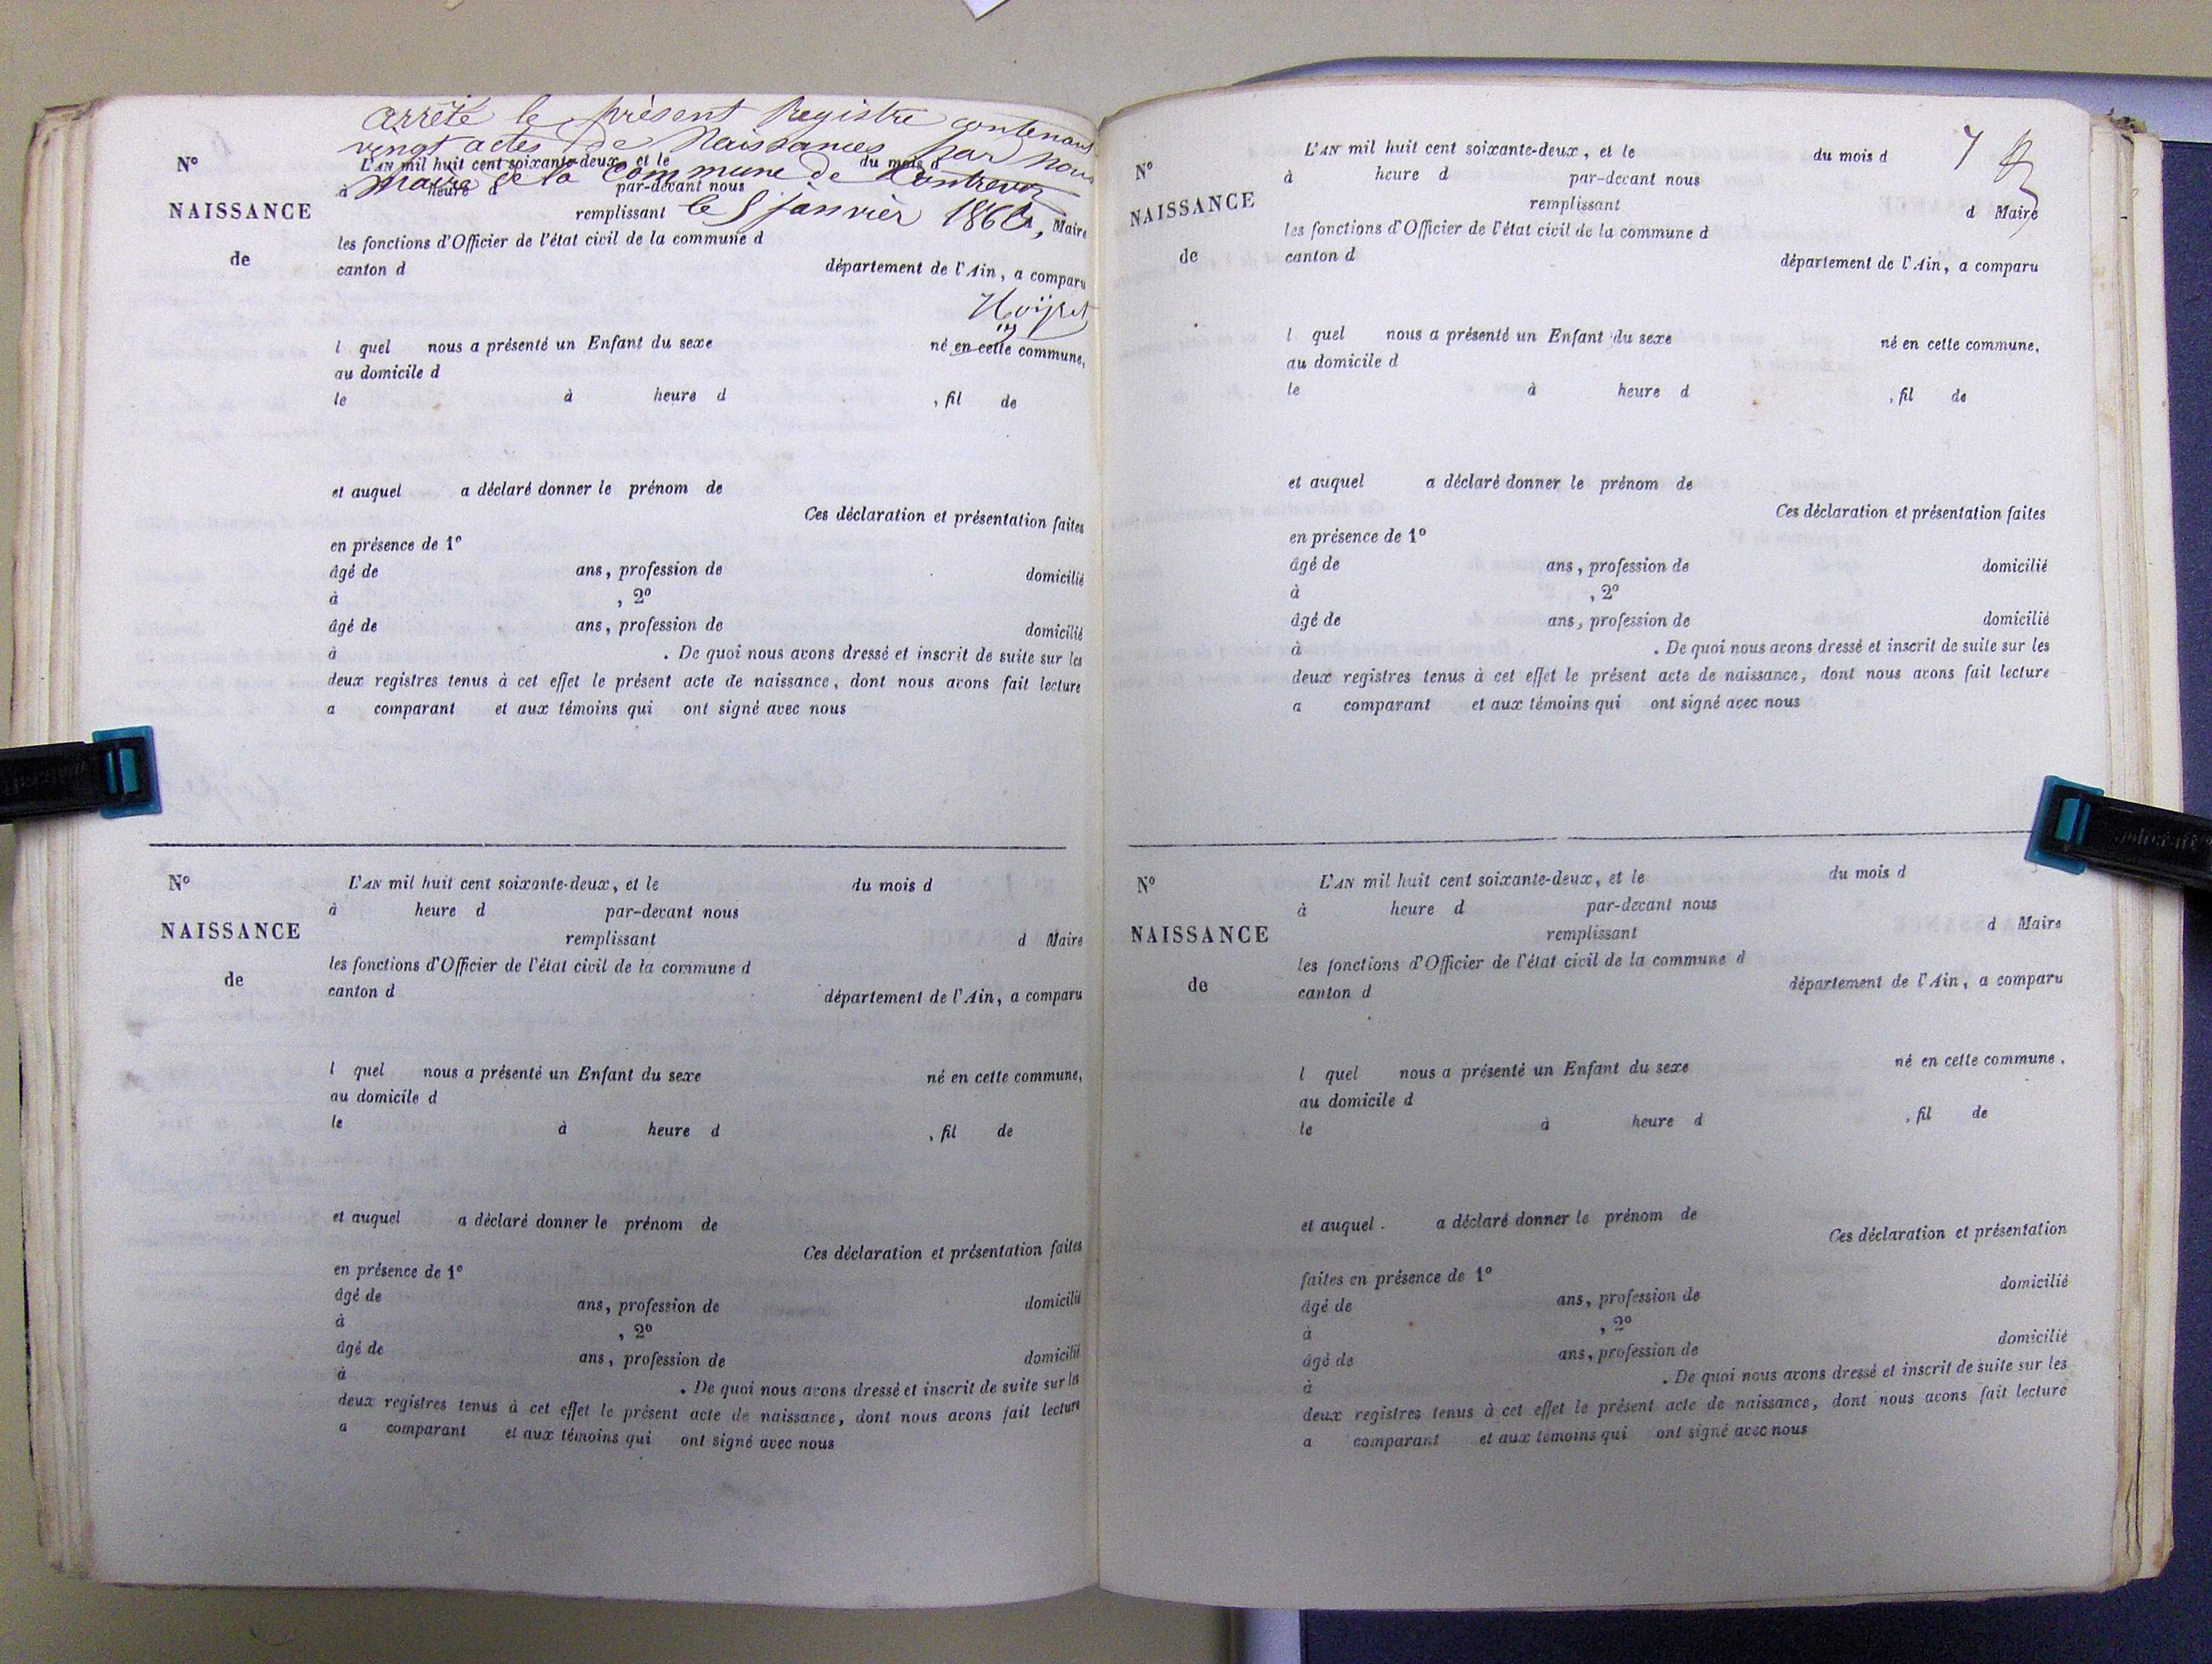 arrêté le présent Registre contenant
vingt actes de Naissances par nous
Maire de la Commune de Contrevoz
le 5 janvier 186
N° L'AN mil huit cent soixante-deux, et le du mois d
à heure d par-devant nous
NAISSANCE remplissant , Maire
les fonctions d'Officier de l'état civil de la commune d
de canton d département de l'Ain, a comparu
l quel nous a présenté un Enfant du sexe né en cette commune,
au domicile d
le à heure d , fil de
et auquel a déclaré donner le prénom de
Ces déclaration et présentation faites
en présence de 1°
âgé de ans, profession de domicilié
à , 2°
âgé de ans, profession de domicilié
à . De quoi nous avons dressé et inscrit de suite sur les
deux registres tenus à cet effet le présent acte de naissance, dont nous avons fait lecture
a comparant et aux témoins qui ont signé avec nous
N° L'AN mil huit cent soixante-deux, et le du mois d
à heure d par-devant nous
NAISSANCE remplissant d Maire
les fonctions d'Officier de l'état civil de la commune d
de canton d département de l'Ain, a comparu
l quel nous a présenté un Enfant du sexe né en cette commune,
au domicile d
le à heure d , fil de
et auquel a déclaré donner le prénom de
Ces déclaration et présentation faites
en présence de 1°
âgé de ans, profession de domicilié
à , 2°
âgé de ans, profession de domicilié
à . De quoi nous avons dressé et inscrit de suite sur les
deux registres tenus à cet effet le présent acte de naissance, dont nous avons fait lecture
a comparant et aux témoins qui ont signé avec nous
7
N° L'AN mil huit cent soixante-deux, et le du mois d
à heure d par-devant nous
NAISSANCE remplissant d Maire
les fonctions d'Officier de l'état civil de la commune d
de canton d département de l'Ain, a comparu
l quel nous a présenté un Enfant du sexe né en cette commune,
au domicile d
le à heure d , fil de
et auquel a déclaré donner le prénom de
Ces déclaration et présentation faites
en présence de 1°
âgé de ans, profession de domicilié
à , 2°
âgé de ans, profession de domicilié
à . De quoi nous avons dressé et inscrit de suite sur les
deux registres tenus à cet effet le présent acte de naissance, dont nous avons fait lecture
a comparant et aux témoins qui ont signé avec nous
N° L'AN mil huit cent soixante-deux, et le du mois d
à heure d par-devant nous
NAISSANCE remplissant d Maire
les fonctions d'Officier de l'état civil de la commune d
de canton d département de l'Ain, a comparu
l quel nous a présenté un Enfant du sexe né en cette commune,
au domicile d
le à heure d , fil de
et auquel a déclaré donner le prénom de
Ces déclaration et présentation
faites en présence de 1°
âgé de ans, profession de domicilié
à , 2°
âgé de ans, profession de domicilié
à . De quoi nous avons dressé et inscrit de suite sur les
deux registres tenus à cet effet le présent acte de naissance, dont nous avons fait lecture
a comparant et aux témoins qui ont signé avec nous